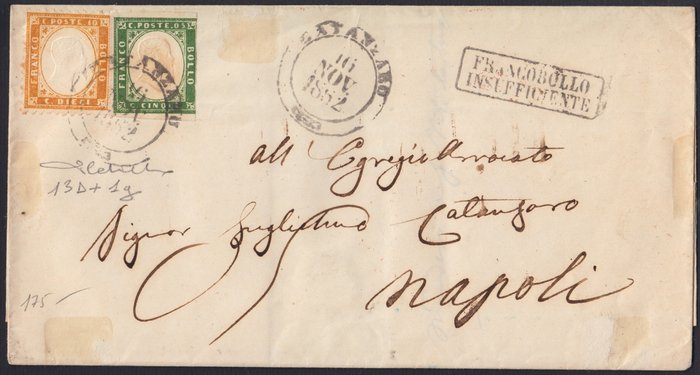 C. POSTE 10
FRANCO
BOLLO
C. DIECI
C. POSTE. 05
FRANCO
BOLLO
CINQUE
CATANZARO
CATANZARO
16
NOV.
1862
FRANCOBOLLO
INSUFFICIENTE
All' Egregio Avvocato
Signor Guglielmo Catanzaro
Napoli
13D+1g
175